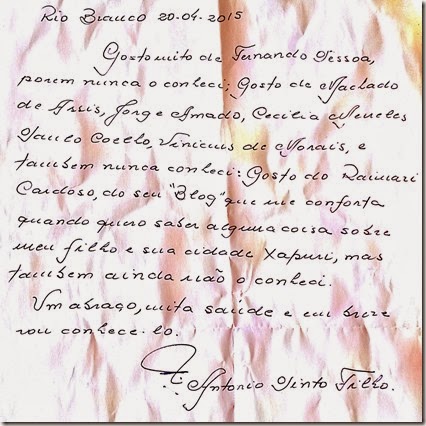 Rio Branco 20-04-2015
Gosto mito de Fernando Pessoa,
porem nunca o conheci; Gosto de Machado
de Assis, Jorge Amado, Cecilia Meireles
Paulo Coelho, Vinicius de Morais, e
tambem nunca conheci: Gosto do Raimari
Cardoso, do seu "Blog" que me conforta
quando quero saber alguma coisa sobre
meu filho e sua cidade Xapuri, mas
tambem ainda não o conheci.
Um abraço, mita saúde e em breve
vou conhece-lo.
Antonio Pinto Filho.